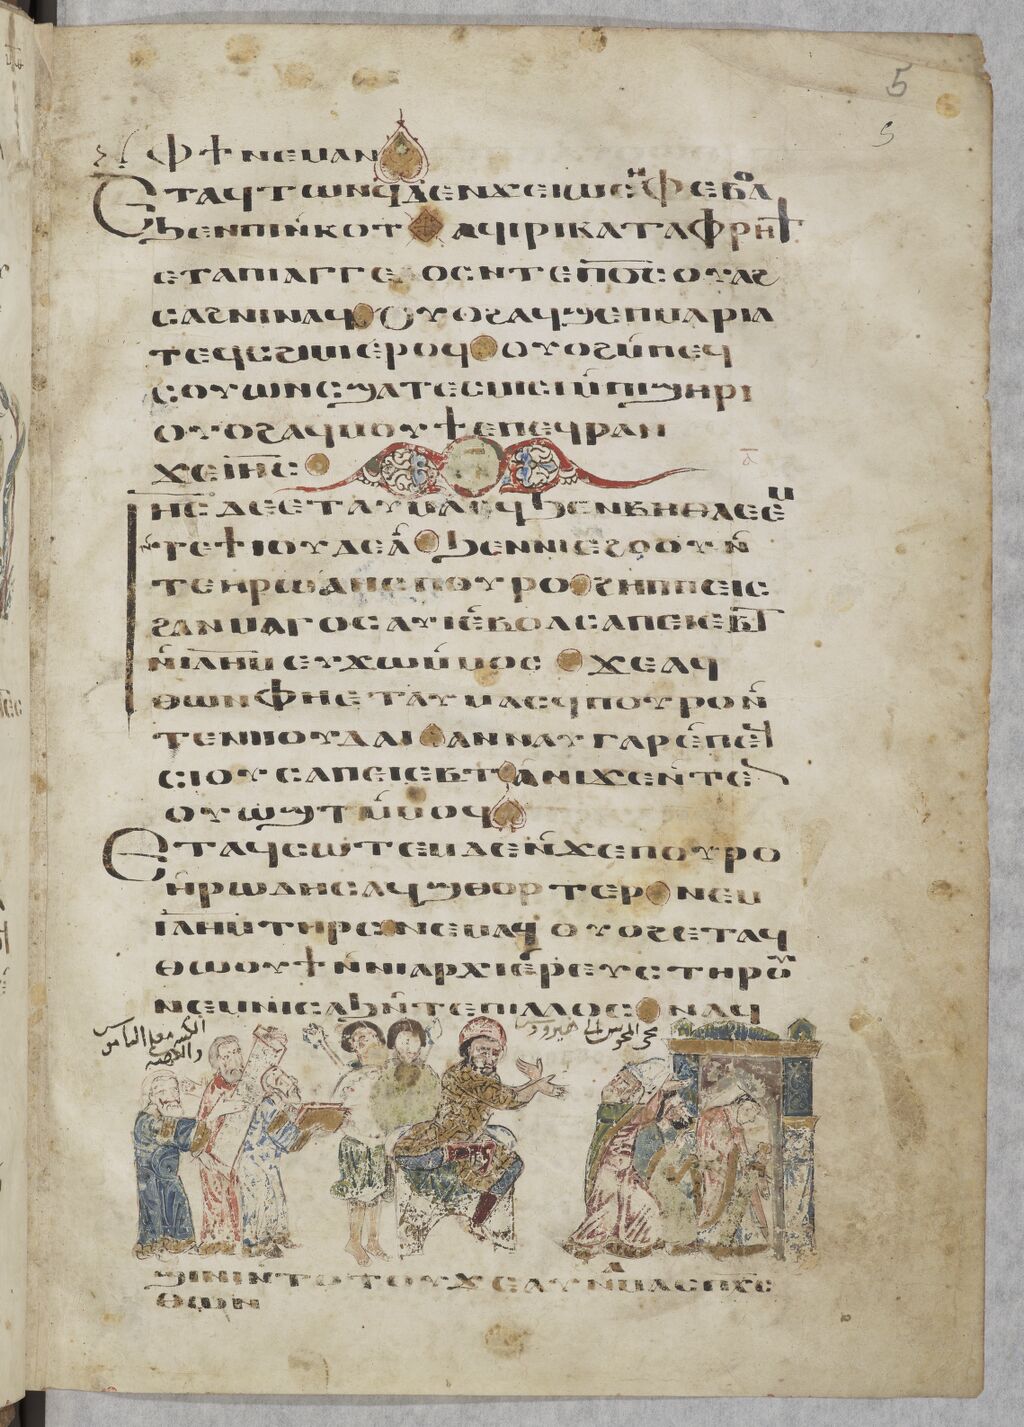 5
ⲫϯ ⲛⲉⲙⲁⲛ
Ⲉⲧⲁϥⲧⲱⲛϥ ⲇⲉ ⲛ̀ϫⲉ ⲓⲱⲥⲏⲫ ⲉⲃⲟⲗ
ϧⲉⲛ ⲡⲓⲛ̀ⲕⲟⲧ ⲁϥⲓⲣⲓ ⲕⲁⲧⲁ ⲫⲣⲏϯ
ⲉⲧⲁ ⲡⲓⲁⲅⲅⲉⲗⲟⲥ ⲛⲧⲉ ⲡⲟ̅ⲥ̅ ⲟⲩⲁϩ
ⲥⲁϩⲛⲓ ⲛⲁϥ Ⲟⲩⲟϩ ⲁϥϣⲉⲡ ⲙⲁⲣⲓⲁ
ⲧⲉϥⲥϩⲓⲙⲓ ⲉⲣⲟϥ ⲟⲩⲟϩ ⲙ̀ⲡⲉϥ
ⲥⲟⲩⲱⲛⲥ ϣⲁⲧⲉⲥⲙⲓⲥⲓ ⲙ̀ⲡⲓϣⲏⲣⲓ
ⲟⲩⲟϩ ⲁϥⲙⲟⲩϯ ⲉⲡⲉϥⲣⲁⲛ
ϫⲉ ⲓⲏ̅ⲥ̅
ⲓⲏ̅ⲥ̅ ⲇⲉ ⲉⲧⲁⲩⲙⲁⲥϥ ϧⲉⲛ ⲃⲏⲑⲗⲉⲉⲙ
ⲛ̀ⲧⲉ ϯⲓⲟⲩⲇⲉⲁ̀ ϧⲉⲛ ⲛⲓⲉϩⲟⲟⲩ ⲛ̀
ⲧⲉ ⲏⲣⲱⲇⲏⲥ ⲡⲟⲩⲣⲟ ϩⲏⲡⲡⲉ ⲓⲥ
ϩⲁⲛⲙⲁⲅⲟⲥ ⲁⲩⲓ̀ ⲉⲃⲟⲗ ⲥⲁ ⲡⲉⲓⲉⲃⲧ
ⲛ̀ⲓⲗ̅ⲏ̅ⲙ̅ ⲉⲩϫⲱ ⲙ̀ⲙⲟⲥ ϫⲉ ⲁϥ
ⲑⲱⲛ ⲫⲏ ⲉⲧⲁⲩⲙⲁⲥϥ ⲡⲟⲩⲣⲟ ⲛ̀
ⲧⲉ ⲛⲓⲓⲟⲩⲇⲁⲓ ⲁⲛⲛⲁⲩ ⲅⲁⲣ ⲉ̀ⲡⲉϥ
ⲥⲓⲟⲩ ⲥⲁ ⲡⲉⲓⲉⲃⲧ ⲁⲛⲓ ϫⲉ ⲛ̀ⲧⲉⲛ
ⲟⲩⲱϣⲧ ⲙ̀ⲙⲟϥ
Ⲉⲧⲁϥⲥⲱⲧⲉⲙ ⲇⲉ ⲛ̀ϫⲉ ⲡⲟⲩⲣⲟ
ⲏ̀ⲣⲱⲇⲏⲥ ⲁϥϣⲑⲟⲣⲧⲉⲣ ⲛⲉⲙ
ⲓⲗ̅ⲏ̅ⲙ̅ ⲧⲏⲣⲥ ⲛⲉⲙⲁϥ ⲟⲩⲟϩ ⲉⲧⲁϥ
ⲑⲱⲟⲩϯ ⲛ̀ⲛⲓⲁⲣⲭⲓⲉ̀ⲣⲉⲩⲥ ⲧⲏⲣⲟⲩ
ⲛⲉⲙ ⲛⲓⲥⲁϧ ⲛ̀ⲧⲉ ⲡⲓⲗⲁⲟⲥ ⲛⲁϥ
ϣⲓⲛⲓ ⲛ̀ⲧⲟⲧⲟⲩ ϫⲉ ⲁⲩⲛⲁⲙⲉⲥ ⲡⲭ̅ⲥ̅
ⲑⲱⲛ